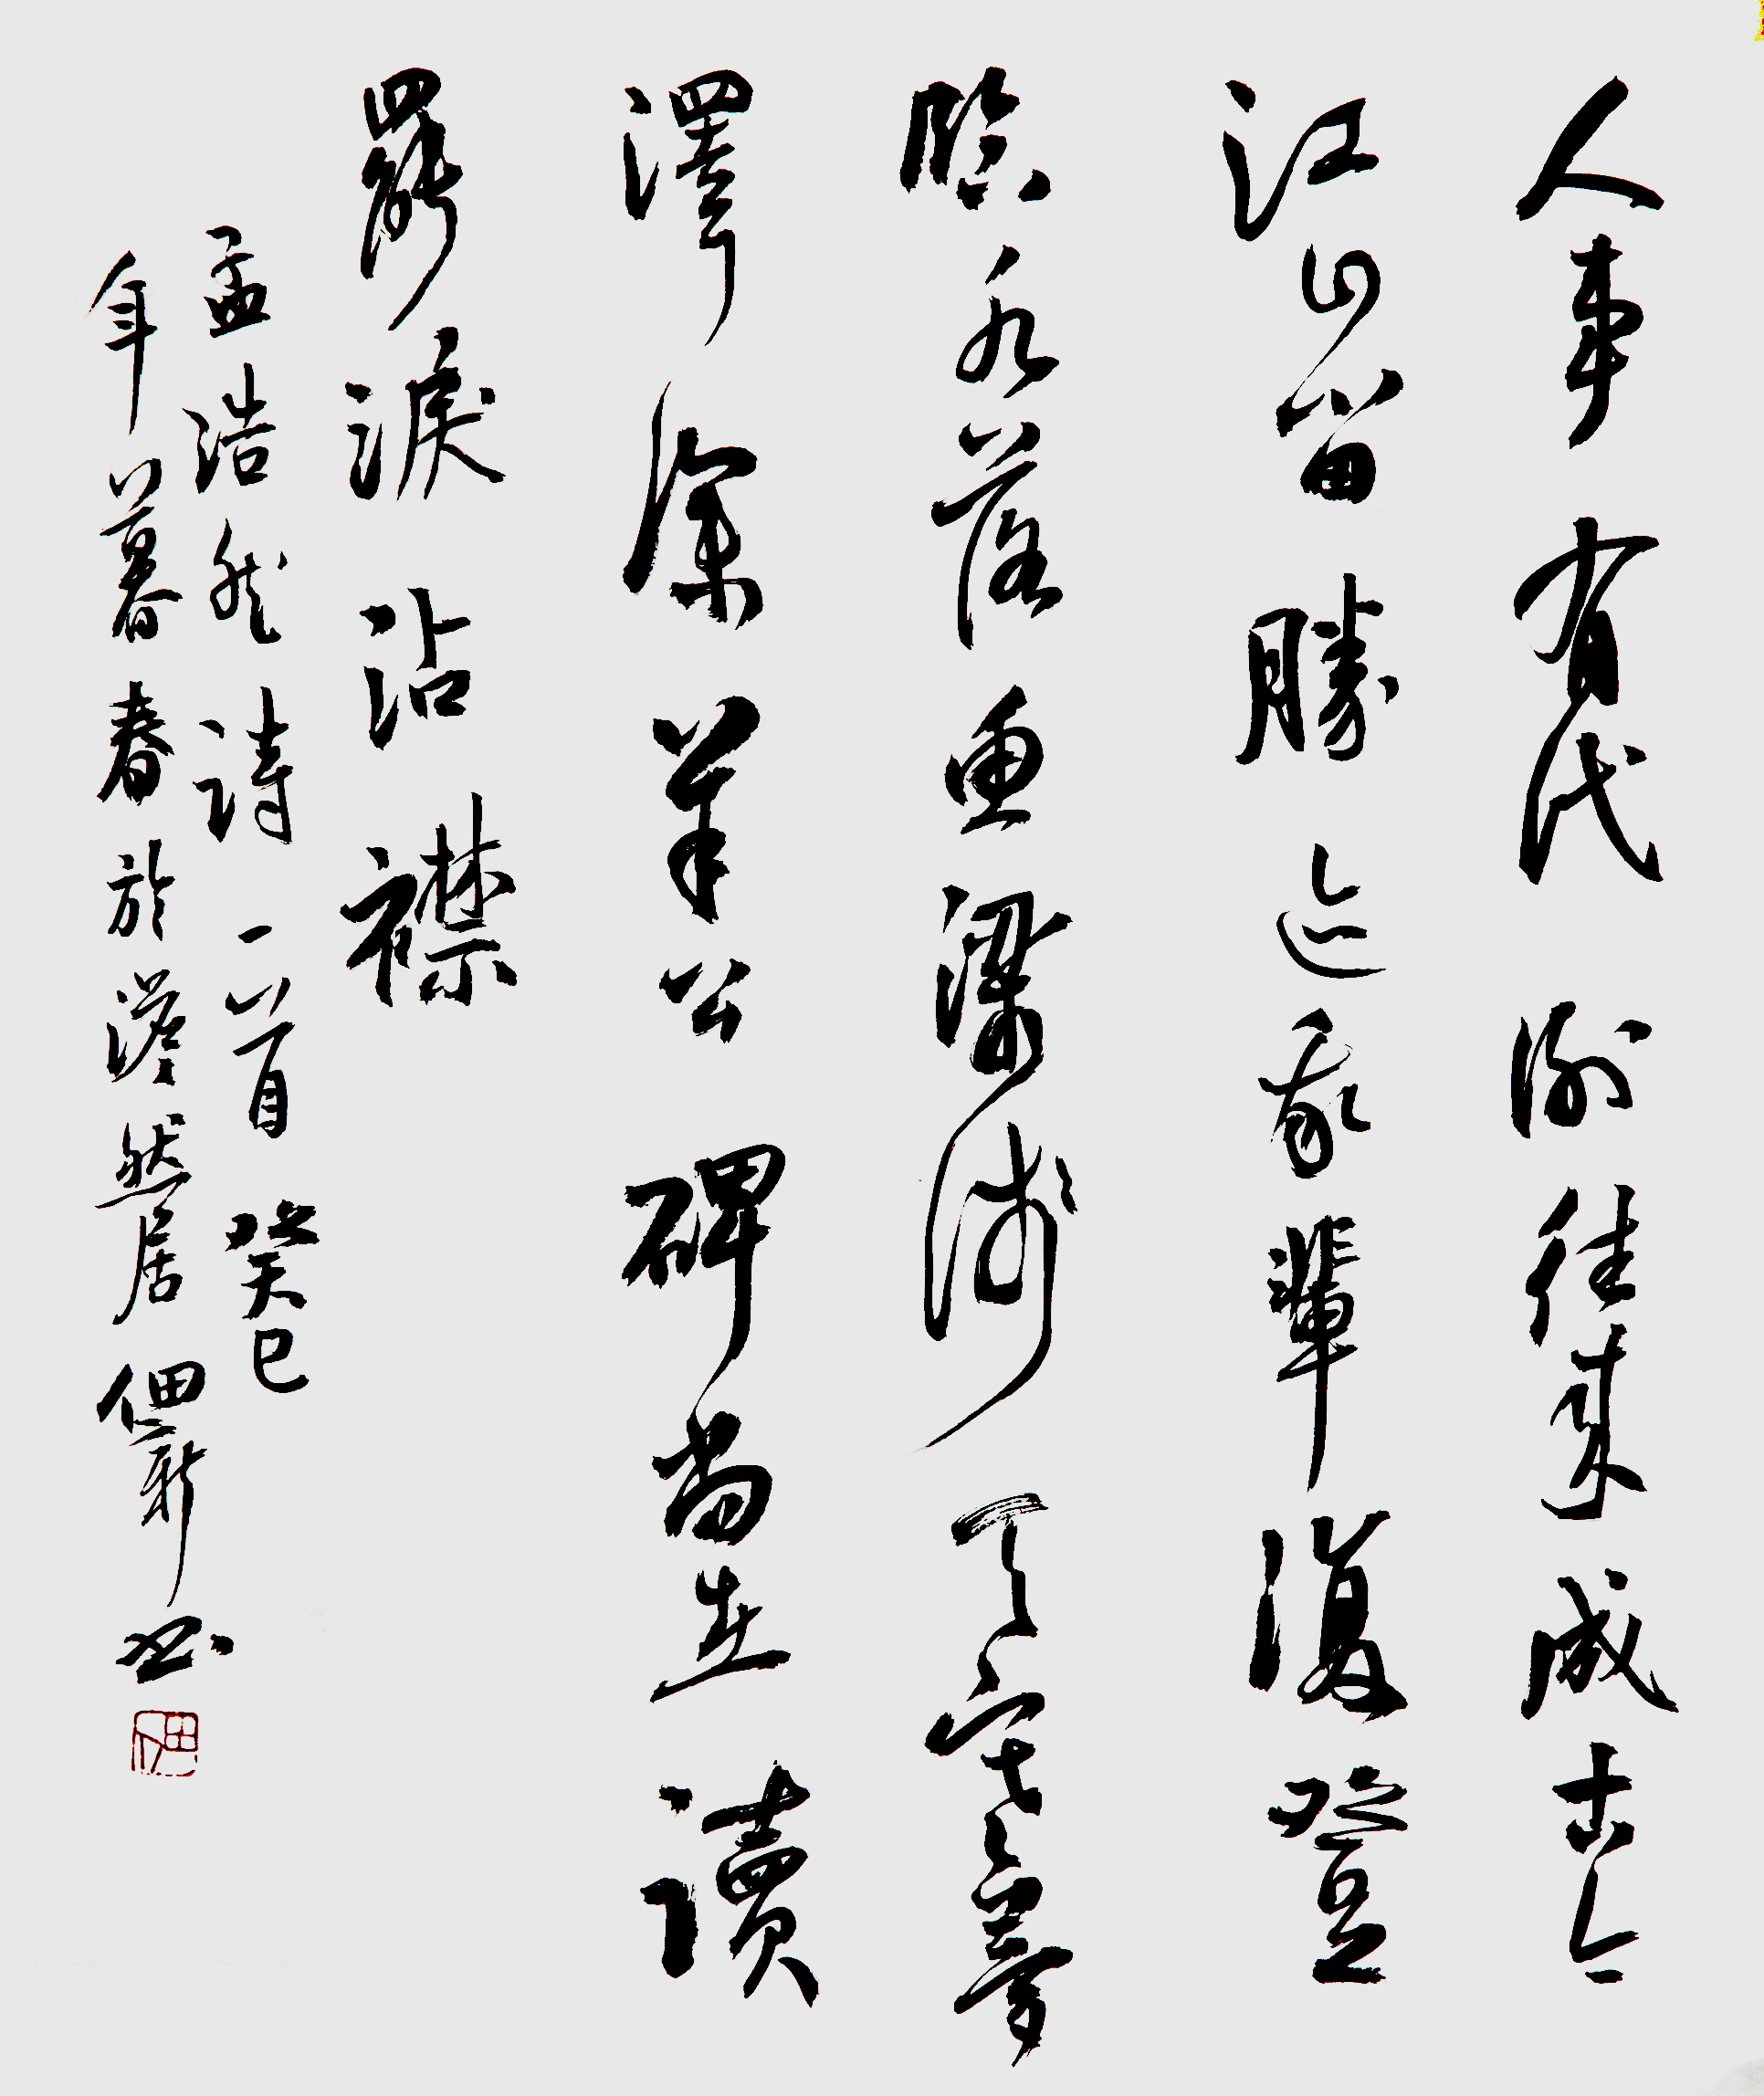 人事有代謝往來成古今
江山留勝迹我輩復登
臨水落魚梁淺天寒夢
澤深羊公碑尚在讀
罷淚沾襟
孟浩然詩一首癸巳
年暮春於澹然居書